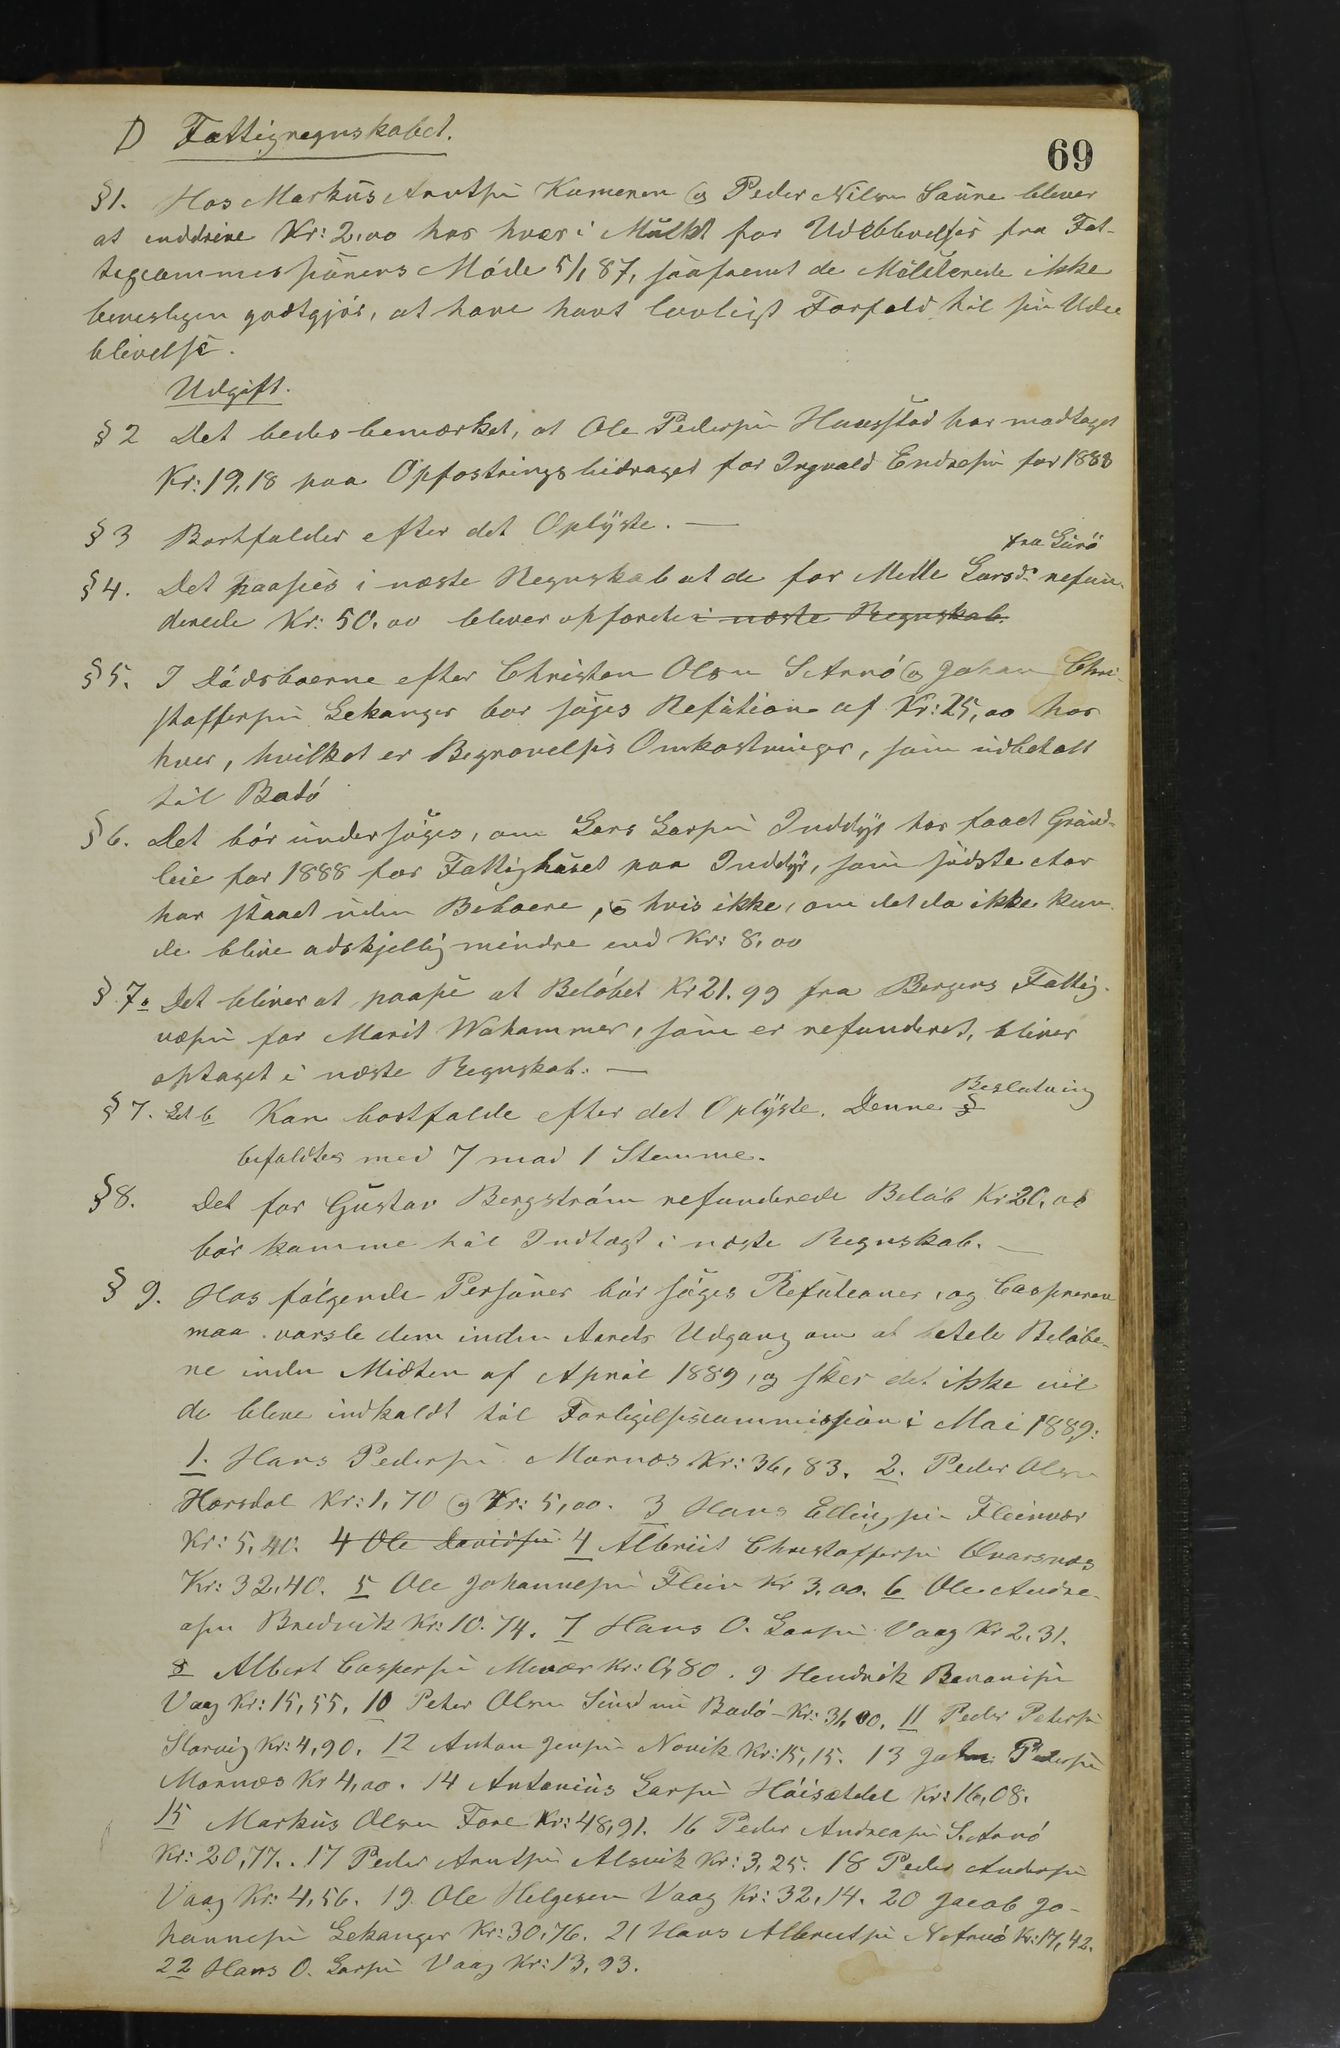 69
D Fattigregnskabet.
§1. Hos Markus Arntsen Kameren og Peder Nilsen Saure bliver
at inddrive Kr: 2,00 hos hver i Mulkt for Udeblivelser fra Fat-
tigcommissionens Møde 5/1 87, saafremt de Mulkterede ikke
bevisligen godtgjør, at have havt lovligt Forfald til sin Ude
blivelse.
Udgift.
§2 Det bedes bemærket, at Ole Pedersen har modtaget
Kr: 19,18 paa Opfostringsbidraget for Ingvald Endresen for 1888
§3 Bortfalder efter det Oplyste. —
fra Givø
§4. Det paasees i næste Regnskab at de for Mette Larsd. refun-
derede Kr: 50.00 bliver opført i næste Regnskab.
§5. I Dødsboerne efter Christen Olsen S. Arnø og Johan Chri-
stoffersen Lekanger bør søges Refution af Kr: 25,00 hos
hver, hvilket er Begravelses Omkostninger, som udbetalt
til Bodø
§6. Det bør undersøges, om Lars Larsen Inddyr har faaet Grund-
leie for 1888 for Fattighuset paa Inddyr, som sidste Aar
har staaet uden Beboere, og hvis ikke, om det da ikke kun-
de blive adskjellig mindre end Kr: 8,00
§7.a Det bliver at paase at Beløbet Kr 21.99 fra Bergens Fattig-
væsen for Marit Wahammer, som er refunderet, bliver
optaget i næste Regnskab. —
Beslutning
§7. Lit b Kan bortfalde efter det Oplyste. Denne §
befattes med 7 mod 1 Stemme.
§8. Det for Gustav Bergstrøm refunderede Beløb Kr 20,00
bør komme til Indtægt i næste Regnskab. —
§9. Hos følgende Personer bør søges Refutioner, og Casserere
maa varsle dem inden Aarets Udgang om at betale Beløbe-
ne inden Midten af April 1889, og sker det ikke vil
de blive indkaldt til Forligelsescommission i Mai 1889:
1. Hans Pedersen Mornæs Kr: 36,83. 2. Peder Olsen
Hørsdal Kr: 1,70 og Kr: 5,00. 3 Hans Ellingsen Fleinvær
Kr: 5,40. 4 Ole Davidsen 4 Albrigt Christoffersen Qvarsnes
Kr: 32,40. 5 Ole Johannesen Flein Kr 3.00. 6 Ole Andre-
asen Bredvik Kr: 10.74. 7 Hans O. Larsen Vaag Kr 2,31.
8 Albert Caspersen Mevær Kr: 0,80. 9 Hendrik Benonisen
Vaag Kr: 15,55. 10 Peter Olsen Sund nu Bodø Kr: 31,00. 11 Peder Petersen
Storvig Kr: 4,90. 12 Anton Jensen Novik Kr: 15,15. 13 John Pedersen
Mornæs Kr 4,00. 14 Antonius Larsen Høisætdel Kr: 16,08.
15 Markus Olsen Fore Kr: 48,91. 16 Peder Andreasen S. Arnø
Kr: 20,77. 17 Peder Arntsen Alsvik Kr: 3,25. 18 Peder Andersen
Vaag Kr: 4,56. 19. Ole Helgesen Vaag Kr: 32,14. 20 Jacob Jo-
hannesen Lekanger Kr: 30,76. 21 Hans Albrigtsen N. Arnø Kr: 17,42.
22 Hans O. Larsen Vaag Kr: 13,93.